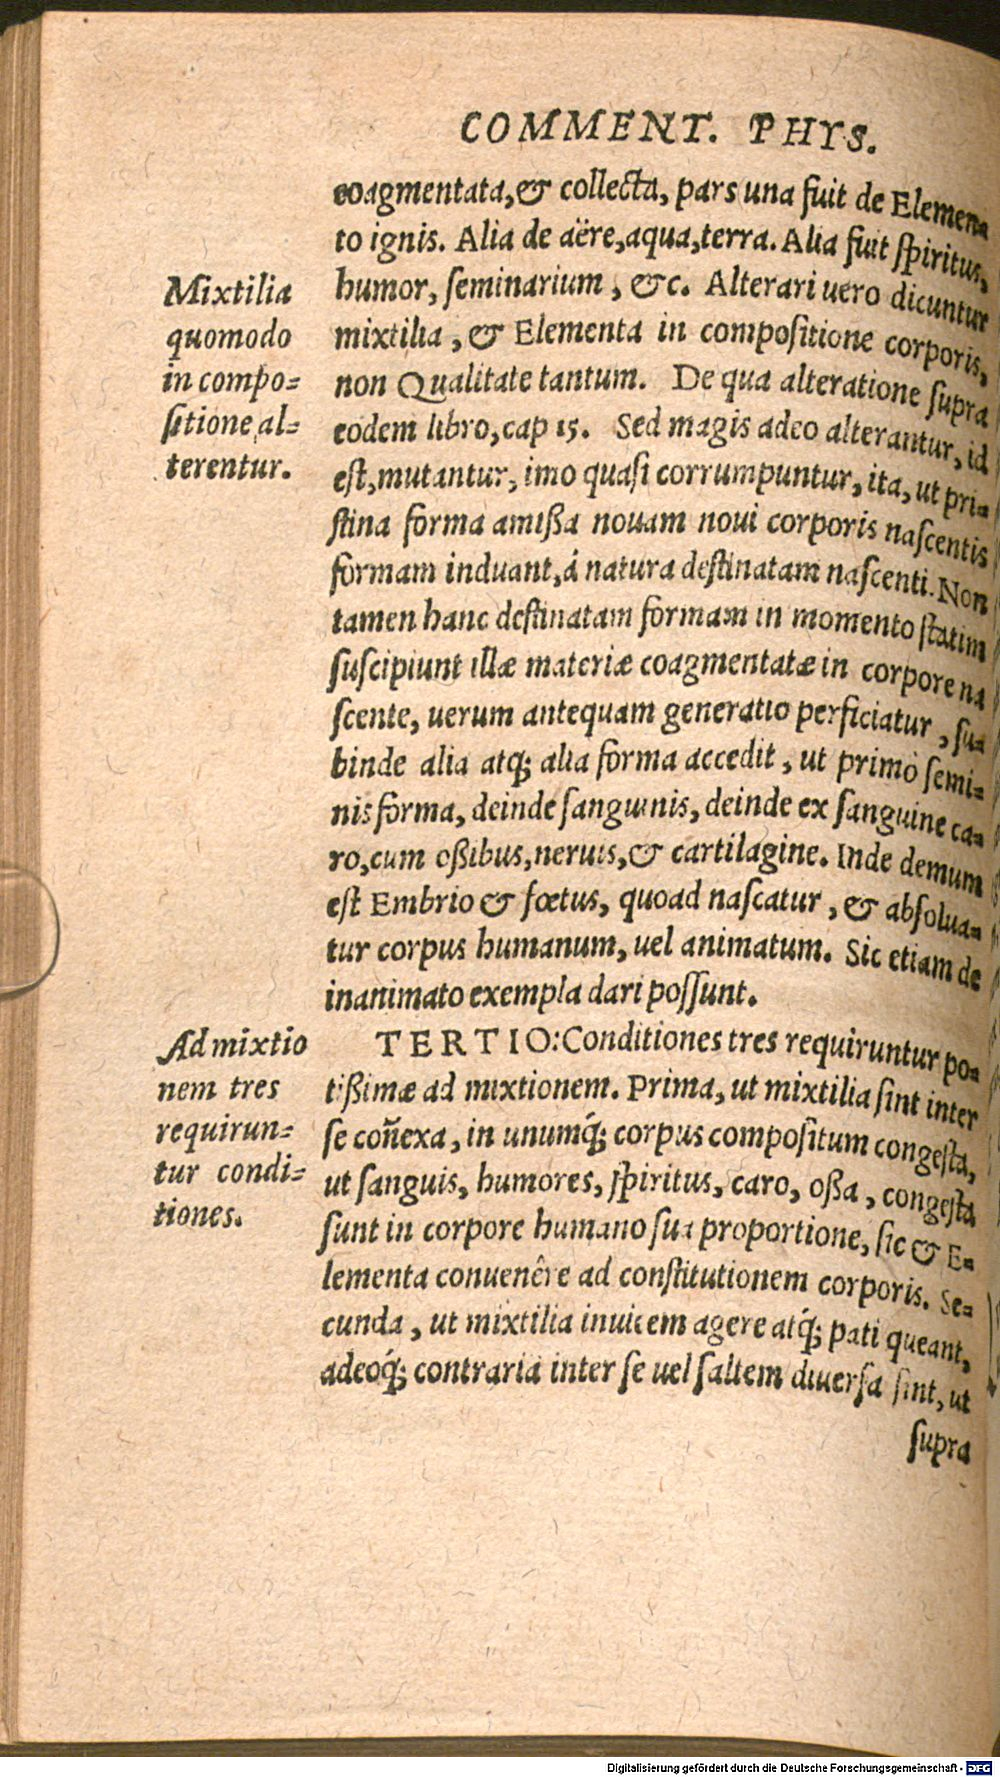 COMMENT. PHYS.
coagmentata, & collecta, pars una fuit de Elemen-
to ignis. Alia de aëre, aqua, terra. Alia fuit spiritus,
humor, seminarium, &c. Alterari uero dicuntur
mixtilia, & Elementa in compositione corporis,
non Qualitate tantum. De qua alteratione supra
eodem libro, cap 15. Sed magis adeo alterantur, id
est, mutantur, imo quasi corrumpuntur, ita, ut pri-
stina forma amißa nouam noui corporis nascentis
formam induant, á natura destinatam nascenti. Non
tamen hanc destinatam formam in momento statim
suscipiunt illæ materiæ coagmentatæ in corpore na
scente, uerum antequam generatio perficiatur, su-
binde alia atq; alia forma accedit, ut primò semi-
nis forma, deinde sanguinis, deinde ex sanguine ca-
ro, cum oßibus, neruis, & cartilagine. Inde demum
est Embrio & fœtus, quoad nascatur, & absolua-
tur corpus humanum, uel animatum. Sic etiam de
inanimato exempla dari possunt.
Mixtilia
quomodo
in compo-
sitione al-
terentur.
TERTIO: Conditiones tres requiruntur po-
tißimæ ad mixtionem. Prima, ut mixtilia sint inter
se coñexa, in unumq́; corpus compositum congesta,
ut sanguis, humores, spiritus, caro, oßa, congesta
sunt in corpore humano sua proportione, sic & E-
lementa conuenêre ad constitutionem corporis. Se-
cunda, ut mixtilia inuicem agere atq́; pati queant,
adeoq́; contraria inter se uel saltem diuersa sint, ut
supra
Ad mixtio
nem tres
requirun-
tur condi-
tiones.
Digitalisierung gefördert durch die Deutsche Forschungsgemeinschaft - DFG